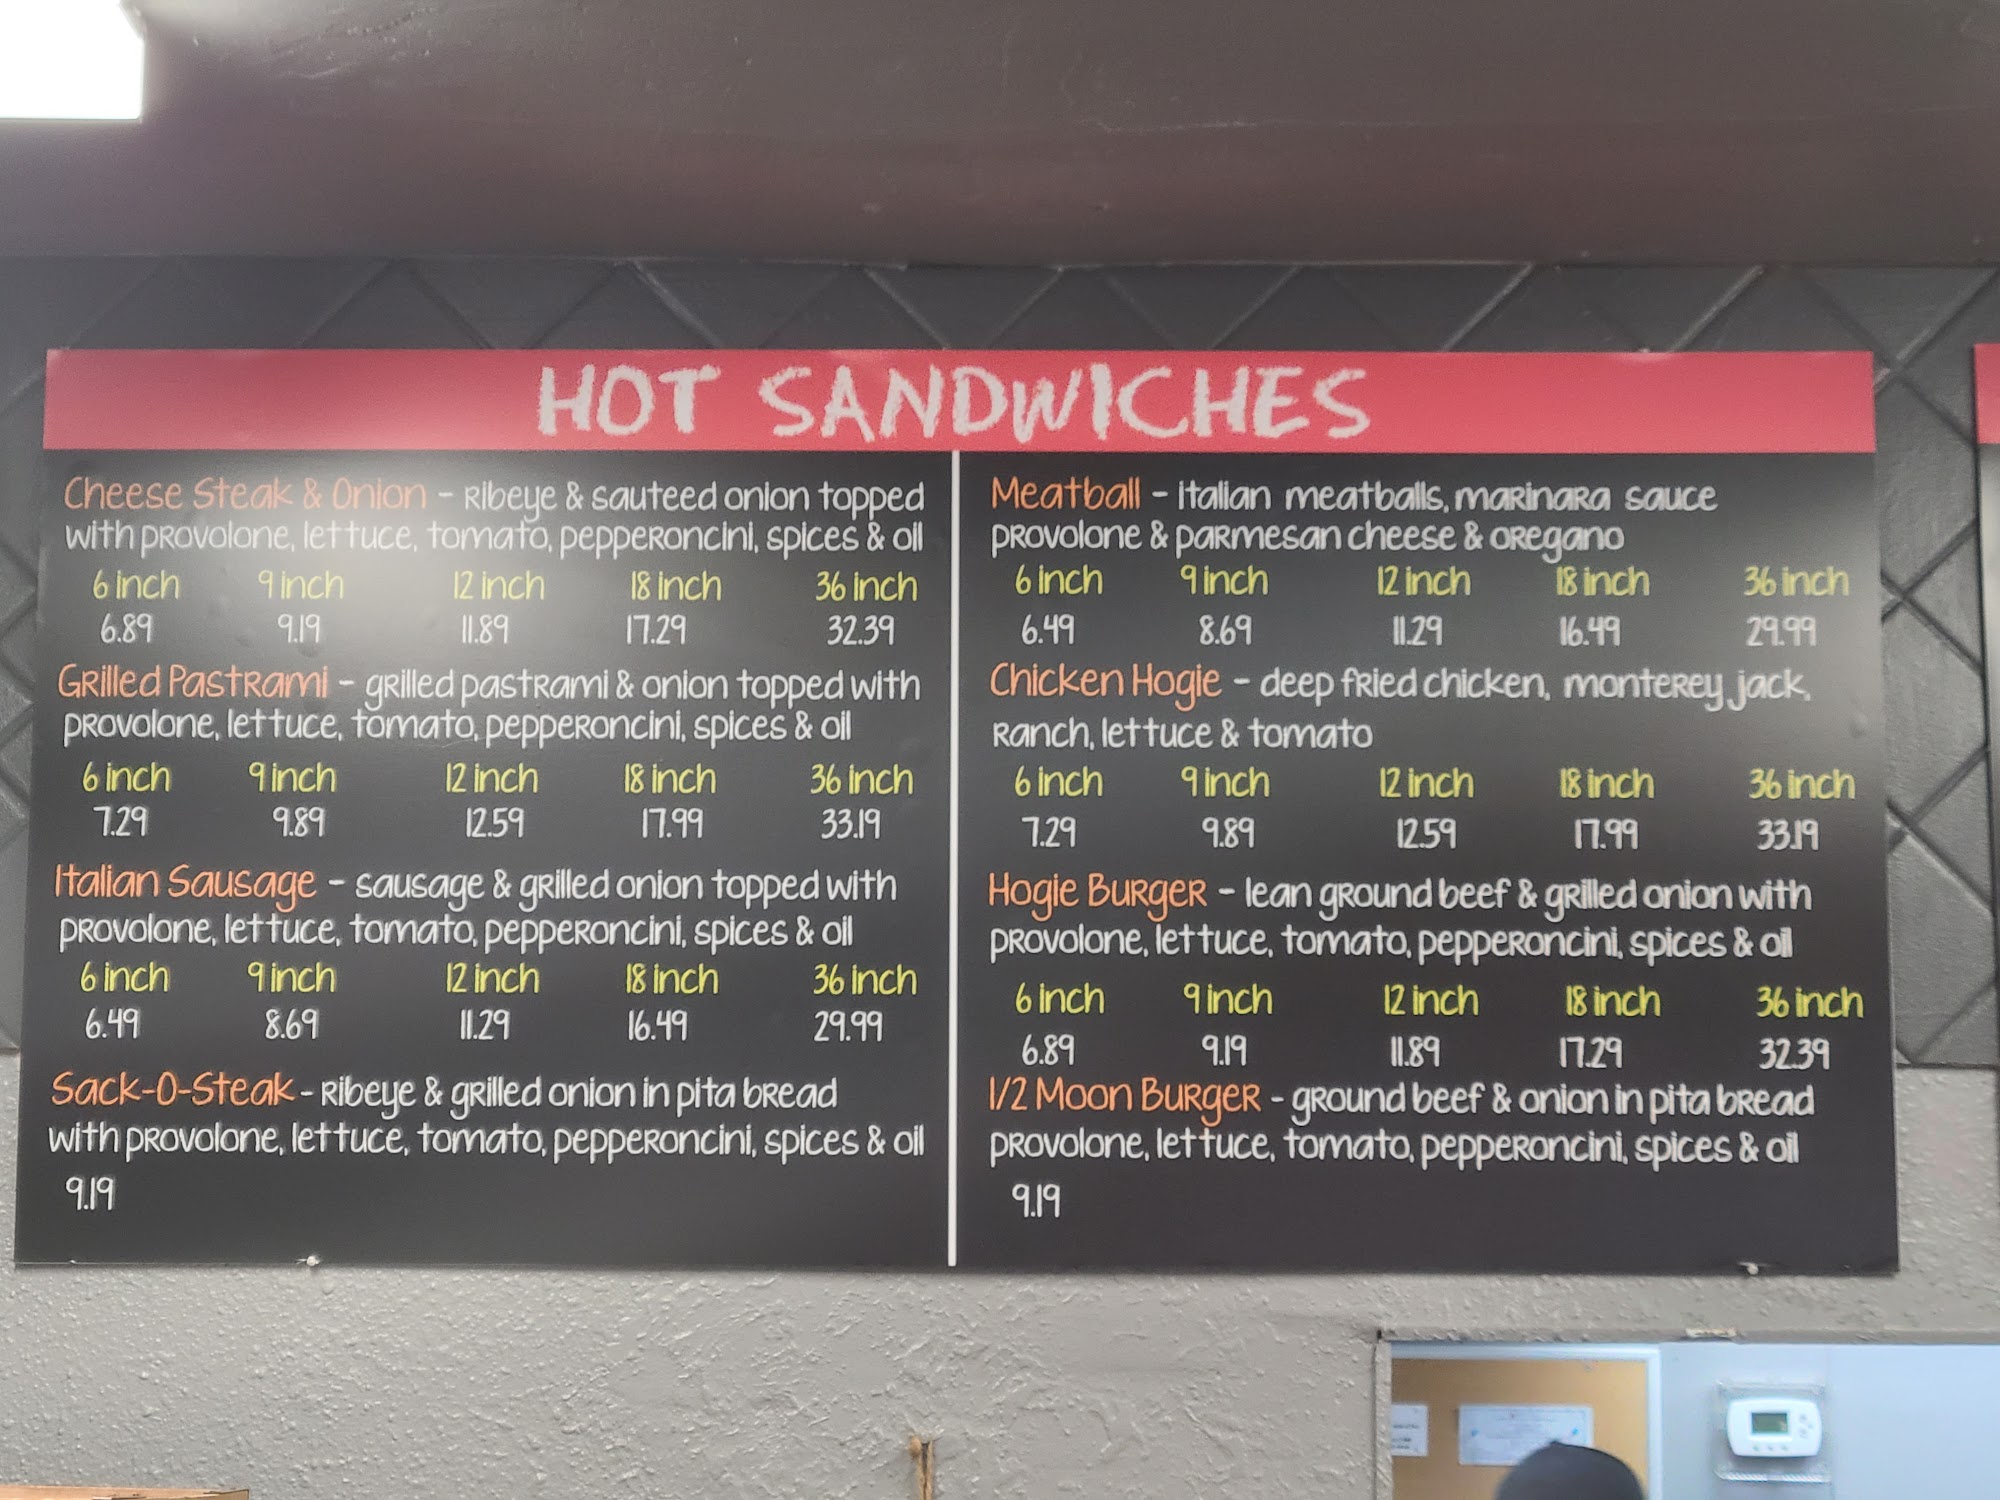 HOT SANDWICHES
Cheese Steak & Onion - Ribeye & sauteed onion topped
with provolone, lettuce, tomato, pepperoncini, spices & oil
6 inch 9 inch 12 inch 18 inch 36 inch
6.89 9.19 11.89 17.29 32.39
Grilled Pastrami - grilled pastrami & onion topped with
provolone, lettuce, tomato, pepperoncini, spices & oil
6 inch 9 inch 12 inch 18 inch 36 inch
7.29 9.89 12.59 17.99 33.19
Italian Sausage - sausage & grilled onion topped with
provolone, lettuce, tomato, pepperoncini, spices & oil
6 inch 9 inch 12 inch 18 inch 36 inch
6.49 8.69 11.29 16.49 29.99
Sack-O-Steak - Ribeye & grilled onion in pita bread
with provolone, lettuce, tomato, pepperoncini, spices & oil
9.19
Meatball - italian meatballs, marinara sauce
provolone & parmesan cheese & oregano
6 inch 9 inch 12 inch 18 inch 36 inch
6.49 8.69 11.29 16.49 29.99
Chicken Hogie - deep fried chicken, monterey jack,
Ranch, lettuce & tomato
6 inch 9 inch 12 inch 18 inch 36 inch
7.29 9.89 12.59 17.99 33.19
Hogie Burger - lean ground beef & grilled onion with
provolone, lettuce, tomato, pepperoncini, spices & oil
6 inch 9 inch 12 inch 18 inch 36 inch
6.89 9.19 11.89 17.29 32.39
1/2 Moon Burger - ground beef & onion in pita bread
provolone, lettuce, tomato, pepperoncini, spices & oil
9.19